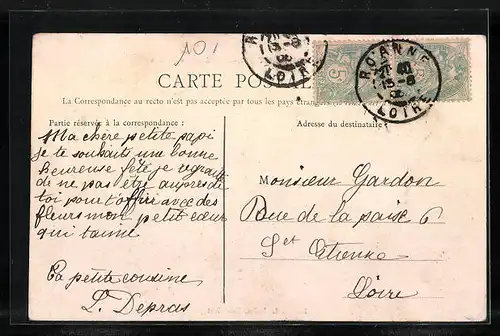 101
ROANNE
LOIRE
ROANNE
LOIRE
CARTE POSTALE
La Correspondance au recto n'est pas acceptée par tous les pays étrangers
Partie réservée à la correspondance :
Adresse du destinataire
Ma chère petite papi
je te souhaits une bonne
heureuse fête je regrette
de ne pas l'être aupres de
toi pour t'offrir avec des
fleurs mon petit cœur
qui t'aime
Ta petite cousine
L. Depras
Monsieur Gardon
Rue de la paise 6
St Etienne
Loire